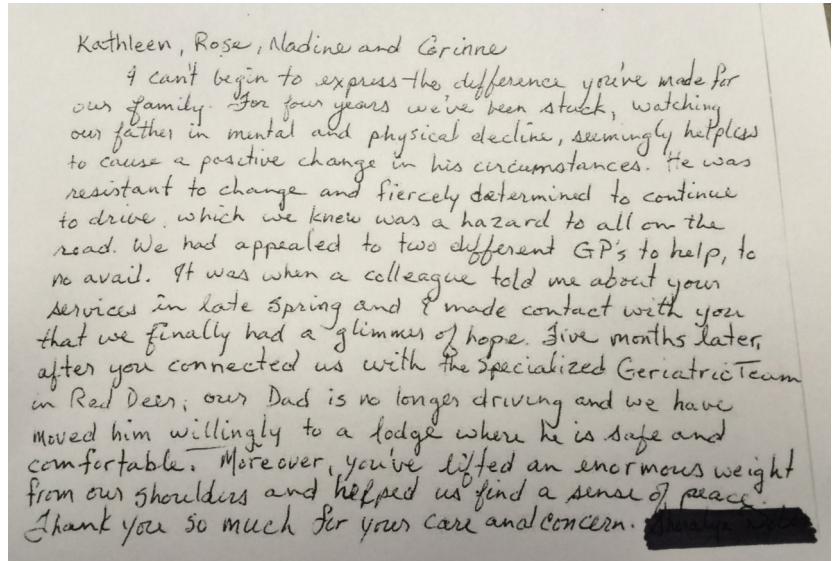 Kathleen, Rose, Nadine and Corinne
I can't begin to express the difference you've made for
our family. For four years we've been stuck, watching
our father in mental and physical decline, seemingly helpless
to cause a positive change in his circumstances. He was
resistant to change and fiercely determined to continue
to drive, which we knew was a hazard to all on the
road. We had appealed to two different GP's to help, to
no avail. It was when a colleague told me about your
services in late Spring and I made contact with you
that we finally had a glimmer of hope. Five months later,
after you connected us with the Specialized Geriatric Team
in Red Deer, our Dad is no longer driving and we have
moved him willingly to a lodge where he is safe and
comfortable. Moreover, you've lifted an enormous weight
from our shoulders and helped us find a sense of peace.
Thank you so much for your care and concern.